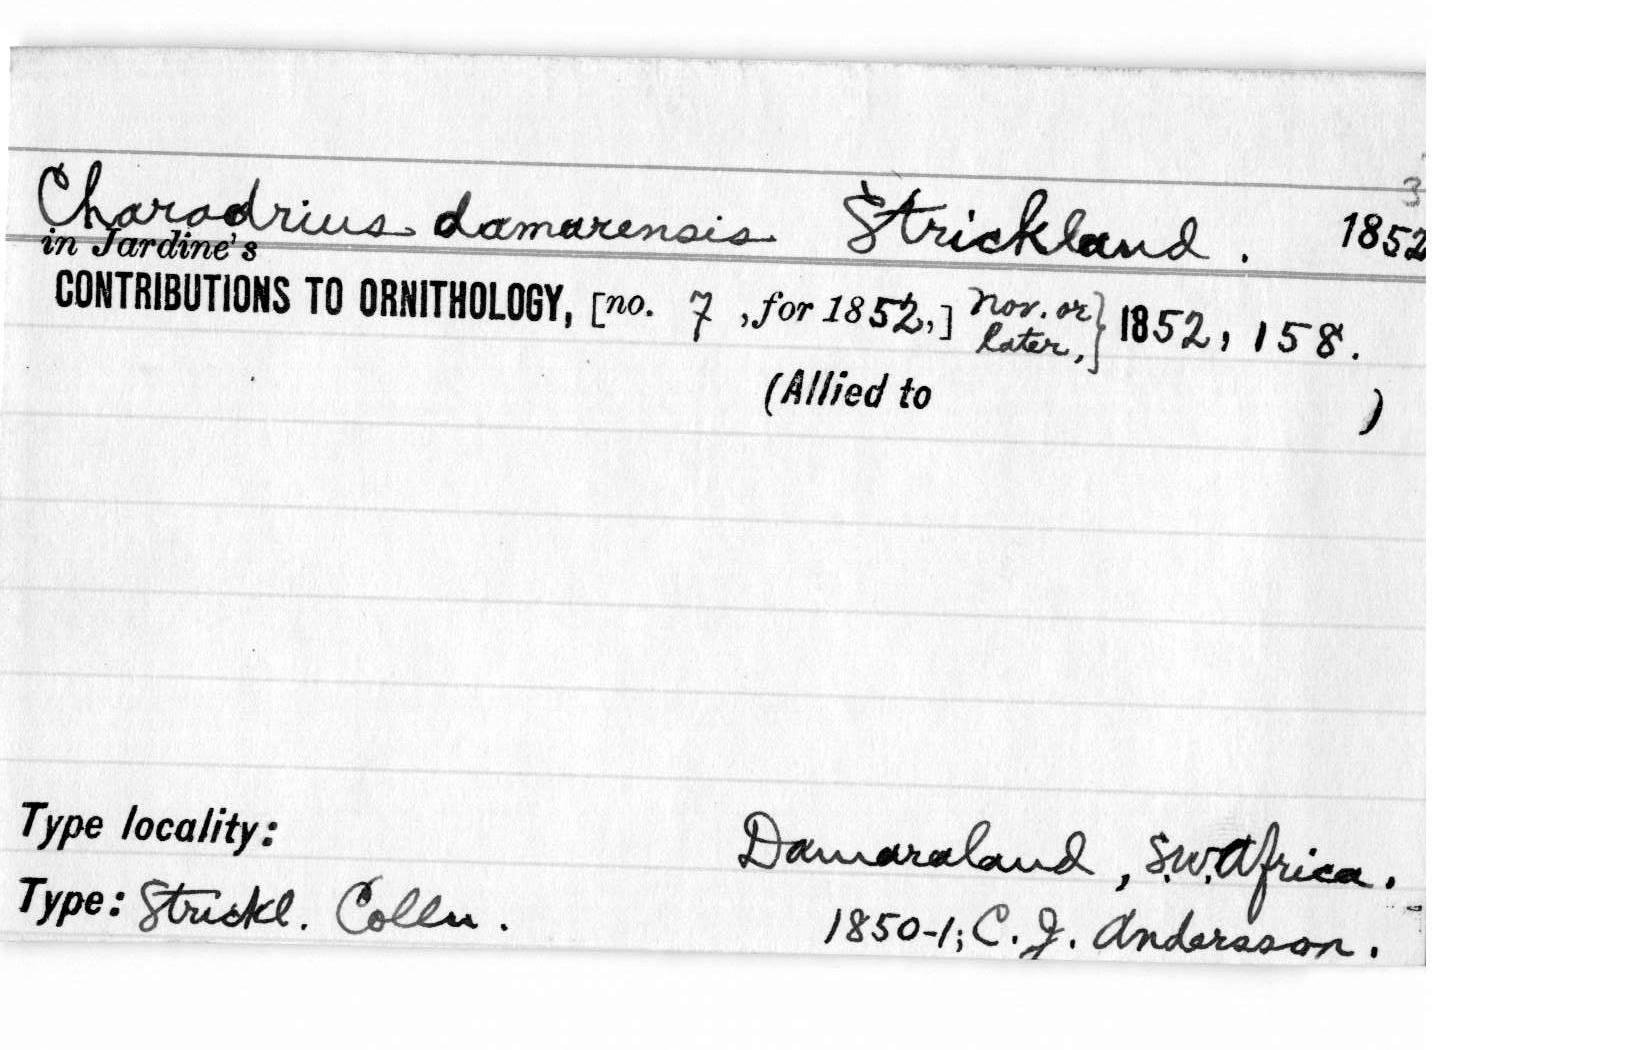 3
Charadrius damarensis Strickland. 1852
in Jardine's
CONTRIBUTIONS TO ORNITHOLOGY, [no. 7, for 1852,] Nov. or later,} 1852, 158.
(Allied to )
Type locality: Damaraland, S.W. Africa.
Type: Strickl. Colln. 1850-1; C. J. Andersson.